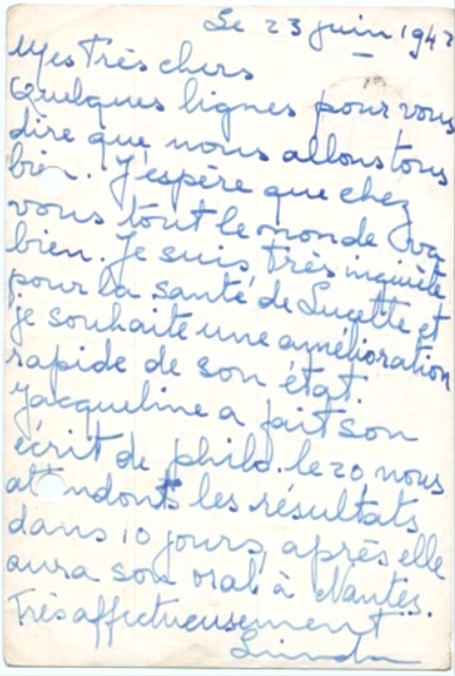 Le 23 juin 194
Mes Très chers
Quelques lignes pour vous
dire que nous allons tous
bien. J'espère que chez
vous tout le monde va
bien. Je suis très inquiète
pour la santé de Lucette et
je souhaite une amélioration
rapide de son état.
Jacqueline a fait son
écrit de philo. le 20 nous
attendons les résultats
dans 10 jours, après elle
aura son oral à Nantes.
Très affectueusement